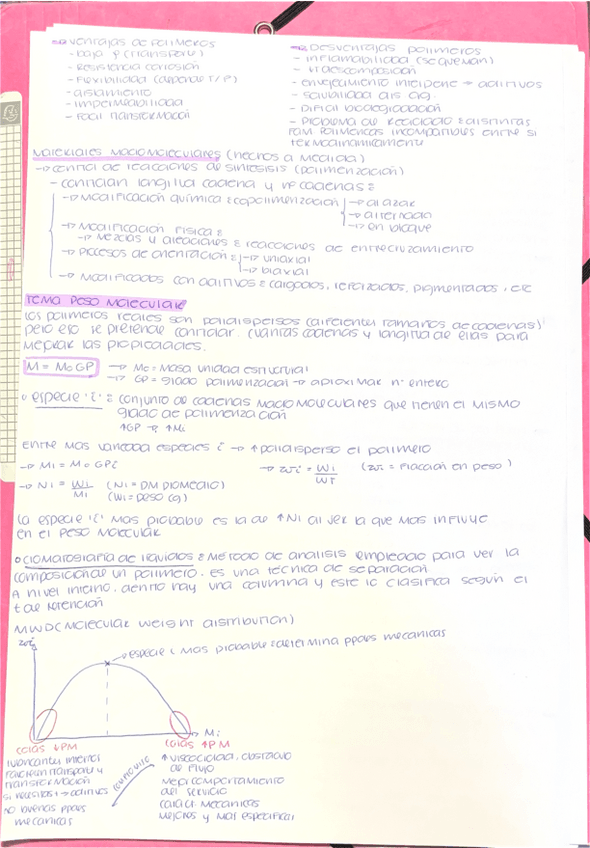 → ventajas de polímeros
- baja ρ (transporte)
- Resistencia corrosión
- Flexibilidad (depende T/P)
- aislamiento
- impermeabilidad
- Fácil transformación
→ Desventajas polímeros
- inflamabilidad (se queman)
- descomposición
- envejecimiento → aditivos
- solubilidad
- Difícil biodegradación
- Problema de Reciclado : distintas
Fam poliméricas incompatibles entre sí
termodinámicamente
Materiales Macromoleculares (hechos a medida)
→ control de reacciones de síntesis (polimerización)
- controlan longitud cadena y nº cadenas :
→ Modificación química : copolimerización
→ al azar
→ alternada
→ en bloque
→ Modificación física :
→ Mezclas y aleaciones : reacciones de entrecruzamiento
→ Procesos de orientación :
→ uniaxial
→ biaxial
→ Modificados con aditivos : cargados, reforzados, pigmentados, etc
TEMA Peso Molecular
Los polímeros reales son polidispersos (diferentes tamaños de cadenas)
pero eso se pretende controlar. Cuántas cadenas y longitud de ellas para
mejorar las propiedades.
M = Mo GP
→ Mo = Masa unidad estructural
→ GP = grado polimerización → aproximar nº entero
○ especie 'i' : conjunto de cadenas macromoleculares que tienen el mismo
grado de polimerización
↑GP → ↑Mi
Entre más variada especies i → ↑ polidisperso el polímero
→ Mi = Mo GPi
→ wi = Wi/WT (wi = Fracción en peso)
→ Ni = Wi/Mi (Ni = PM promedio)
(Wi = peso (g))
La especie 'i' más probable es la de ↑Ni al ser la que más influye
en el peso molecular
○ cromatografía de líquidos : Método de análisis empleado para ver la
composición de un polímero. es una técnica de separación
A nivel interno, dentro hay una columna y este lo clasifica según el
t de retención
MWD (Molecular weight distribution)
wi
→ especie i más probable : determina ppdes mecánicas
→ Mi
colas ↓PM
lubricantes internos
facilitan transporte y
transformación
si necesitas + → aditivos
no buenas ppdes
mecánicas
colas ↑PM
↑ viscosidad, obstáculo
de flujo
Mejor comportamiento
del servicio
caract. mecánicas
mejores y más específicas